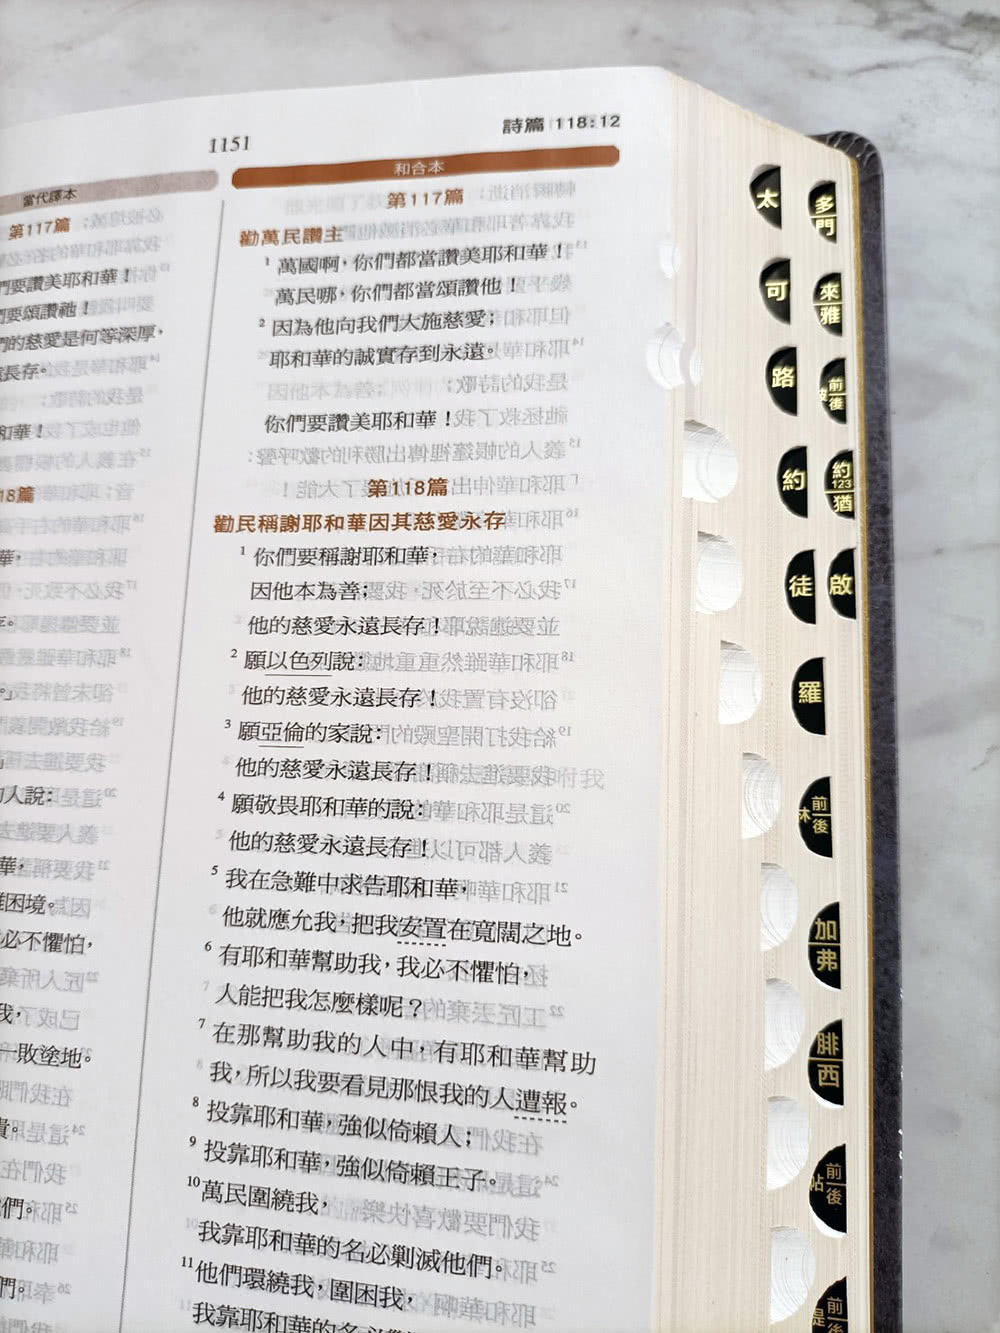 1151
詩篇 118:12
當代譯本
第117篇
們要讚美耶和華！
們要頌讚祂！
們的慈愛是何等深厚，
長存。
和華！
18篇
華，
人說：
華，
困境。
必不懼怕，
我，
一敗塗地。
們。
們。
和合本
第117篇
勸萬民讚主
1 萬國啊，你們都當讚美耶和華！
萬民哪，你們都當頌讚他！
2 因為他向我們大施慈愛；
耶和華的誠實存到永遠。
你們要讚美耶和華！
第118篇
勸民稱謝耶和華因其慈愛永存
1 你們要稱謝耶和華，
因他本為善；
他的慈愛永遠長存！
2 願以色列說：
他的慈愛永遠長存！
3 願亞倫的家說：
他的慈愛永遠長存！
4 願敬畏耶和華的說：
他的慈愛永遠長存！
5 我在急難中求告耶和華，
他就應允我，把我安置在寬闊之地。
6 有耶和華幫助我，我必不懼怕，
人能把我怎麼樣呢？
7 在那幫助我的人中，有耶和華幫助
我，所以我要看見那恨我的人遭報。
8 投靠耶和華，強似倚賴人；
9 投靠耶和華，強似倚賴王子。
10 萬民圍繞我，
我靠耶和華的名必剿滅他們。
11 他們環繞我，圍困我，
我靠耶和華的名必
太
可
路
約
徒
羅
前 後
林
加 弗
腓 西
前 後
帖
前 後
提
多 門
來 雅
前 後
彼
約 123 猶
啟